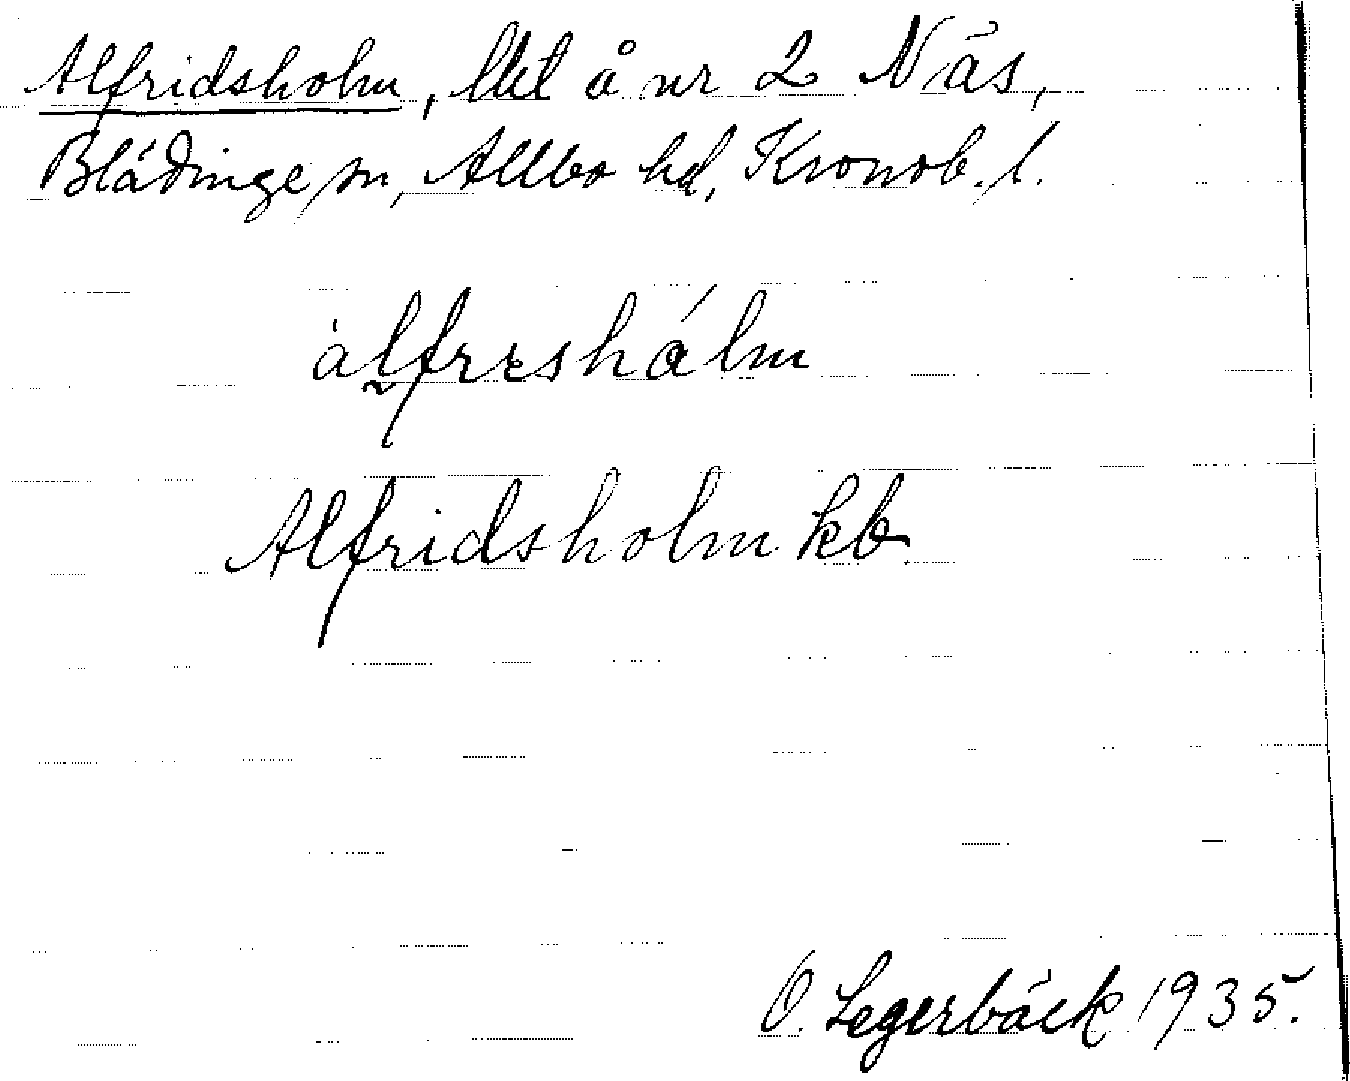 Alfridsholm, lht å nr 2 Näs,
Blädinge sn, Allbo hd, Kronob. l.
àlfreshálm
Alfridsholm kb.
O. Legerbäck 1935.